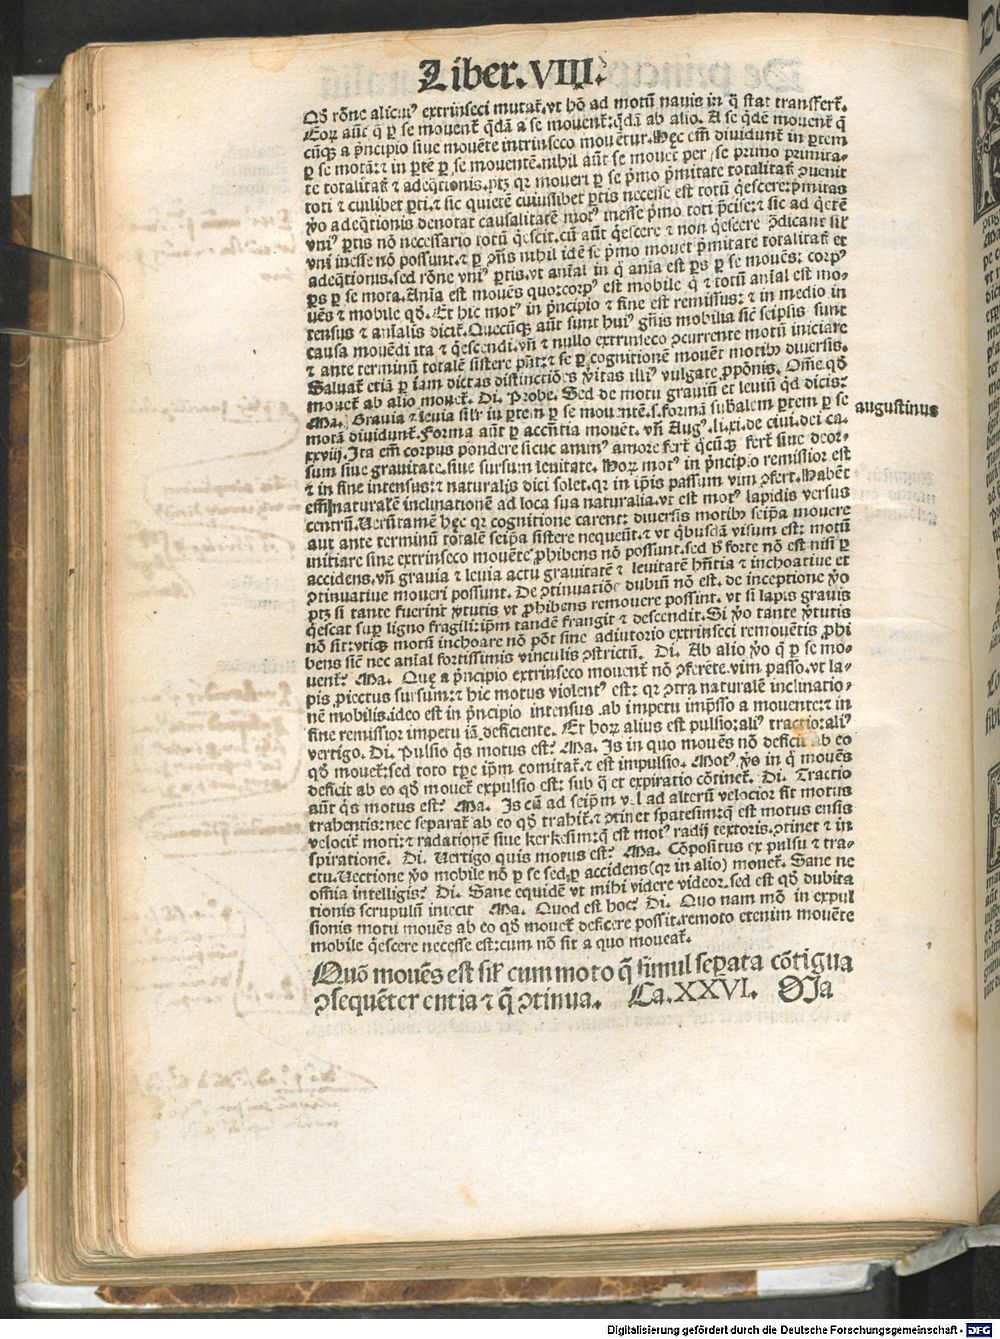 Liber.VIII.
Qď rõne alicuiꝰ extrinseci mutat᷑.vt hõ ad motũ nauis in q̃ stat transfert᷑.
Eoꝝ aũt q̃ ꝑ se mouent᷑ q̃dã a se mouent᷑:q̃dã ab alio. A se q̃dẽ mouent᷑ q̃
cũqꝫ a p̃ncipio siue mouẽte intrinseco mouẽtur.Hęc em̃ diuidunt᷑ in ꝑtem
ꝑ se motã:⁊ in ꝑtẽ ꝑ se mouentẽ.nihil aũt se mouet per se primo primita-
te totalitat᷑ ⁊ adeq̃tionis.ptꝫ qꝛ moueri ꝑ se p̃mo p̃mitate totalitat᷑ ꝓuenit
toti ⁊ cuilibet ꝑti.⁊ sic quietẽ cuiuslibet ꝑtis necesse est totũ q̃escere:p̃mitas
ꝟo adeq̃tionis denotat causalitatẽ motꝰ inesse p̃mo toti p̃cise:⁊ sic ad q̃etẽ
vniꝰ ꝑtis nõ necessario totũ q̃escit.cũ aũt q̃escere ⁊ non q̃escere p̃dicant᷑ sil᷑
vni inesse nõ possunt.⁊ ꝑ ꝯñs nihil idẽ se p̃mo mouet p̃mitate totalitat᷑ et
adeq̃tionis.sed rõne vniꝰ ꝑtis.vt aĩal in q̃ aĩa est ꝑs ꝑ se mouẽs: corpꝰ
ꝑs ꝑ se mota.Aĩa est mouẽs quo:corpꝰ est mobile q̃ ⁊ totũ aĩal est mo-
uẽs ⁊ mobile qď. Et hic motꝰ in p̃ncipio ⁊ fine est remissus: ⁊ in medio in
tensus ⁊ aĩalis dicit᷑.Quecũqꝫ aũt sunt huiꝰ gñis mobilia sicẽ seipsis sunt
causa mouẽdi ita ⁊ q̃escendi.vñ ⁊ nullo extrinseco ꝯcurrente motũ iniciare
⁊ ante terminũ totalẽ sistere pñt:⁊ se ꝑ cognitionẽ mouẽt motibꝫ diuersis.
Saluat᷑ etiã ꝑ iam dictas distinctiões ꝟitas illiꝰ vulgate ꝓpõnis. Omẽ qď
mouet᷑ ab alio mouet᷑. Di. Probe. Sed de motu grauiũ et leuiũ q̃d dicis?
Ma. Grauia ⁊ leuia sil᷑r in ꝑtem ꝑ se mouentẽ.s.formã sub̃alem ꝑtem ꝑ se
motã diuidunt᷑.Forma aũt ꝑ accñtia mouẽt. vñ Augꝰ.li.xi.de ciui.dei ca.
xxviij.Ita em̃ corpus pondere sicuc animꝰ amore fert᷑ q̃cũqꝫ fert᷑ siue deor-
sum siue grauitate.siue sursum leuitate. Hoꝝ motꝰ in p̃ncipio remissior est
⁊ in fine intensus:⁊ naturalis dici solet.qꝛ in ip̃is passum vim ꝯfert.Habẽt
em̃ naturalẽ inclinationẽ ad loca sua naturalia.vt est motꝰ lapidis versus
centrũ.Uerũtamẽ hęc qꝛ cognitione carent: diuersis motibꝫ seip̃a mouere
aut ante terminũ totalem seip̃a sistere nequeũt.⁊ vt q̃busdã visum est: motũ
initiare sine extrinseco mouẽte ꝓhibens nõ possunt.sed ꝑ forte nõ est nisi ꝑ
accidens.vñ grauia ⁊ leuia actu grauitatẽ ⁊ leuitatẽ hñtia ⁊ inchoatiue et
ꝯtinuatiue moueri possunt. De ꝯtinuatiõe dubiũ nõ est. de inceptione ꝟo
ptꝫ si tante fuerint ꝟtutis vt ꝓhibens remouere possint. vt si lapis grauis
q̃escat suꝑ ligno fragili:ip̃m tandẽ frangit ⁊ descendit.Si ꝟo tante ꝟtutis
nõ sit:vtiqꝫ motũ inchoare nõ põt sine adiutorio extrinseci remouẽtis ꝓhi
bens sicẽ nec aĩal fortissimis vinculis ꝯstrictũ. Di. Ab alio ꝟo q̃ ꝑ se mo-
uent᷑? Ma. Quę a p̃ncipio extrinseco mouent᷑ nõ ꝯferẽte.vim passo.vt la-
pis ꝓiectus sursum:⁊ hic motus violentꝰ est: qꝛ ꝯtra naturalẽ inclinatio-
nẽ mobilis.ideo est in p̃ncipio intensus .ab impetu imp̃sso a mouente:⁊ in
fine remissior impetu iã deficiente. Et hoꝝ alius est pulsio:aliꝰ tractio:aliꝰ
vertigo. Di. Pulsio q̃s motus est? Ma. Is in quo mouẽs nõ deficit ab eo
qď mouet᷑:sed toto tp̃e ip̃m comitat᷑.⁊ est impulsio. Motꝰ ꝟo in q̃ mouẽs
deficit ab eo qď mouet᷑ expulsio est: sub q̃ et expiratio cõtinet᷑. Di. Tractio
aũt q̃s motus est? Ma. Is cũ ad seip̃m vel ad alterũ velocior sit motus
trahentis:nec separat᷑ ab eo qď trahit᷑.⁊ ꝯtinet spatesim:q̃ est motus ensis
velocit᷑ moti:⁊ radationẽ siue kerkesim:q̃ est motꝰ radij textoris.ꝯtinet ⁊ in
spirationẽ. Di. Uertigo quis motus est? Ma. Cõpositus ex pulsu ⁊ tra-
ctu.Uectione ꝟo mobile nõ ꝑ se sed ꝑ accidens(qꝛ in alio) mouet᷑. Sane ne
om̃ia intelligis? Di. Sane equidẽ vt mihi videre videor.sed est qď dubita
tionis scrupulũ iniecit Ma. Quod est hoc? Di. Quo nam mõ in expul
sionis motu mouẽs ab eo qď mouet᷑ deficere possit.remoto etenim mouẽte
mobile q̃escere necesse est:cum nõ sit a quo moueat᷑.
augustinus
Quõ mouẽs est sil᷑ cum moto q̃ simul seꝑata cõtigua
ꝯsequẽter entia ⁊ q̃ ꝯtinua. Ca.XXVI. DIa
Digitalisierung gefördert durch die Deutsche Forschungsgemeinschaft - DFG